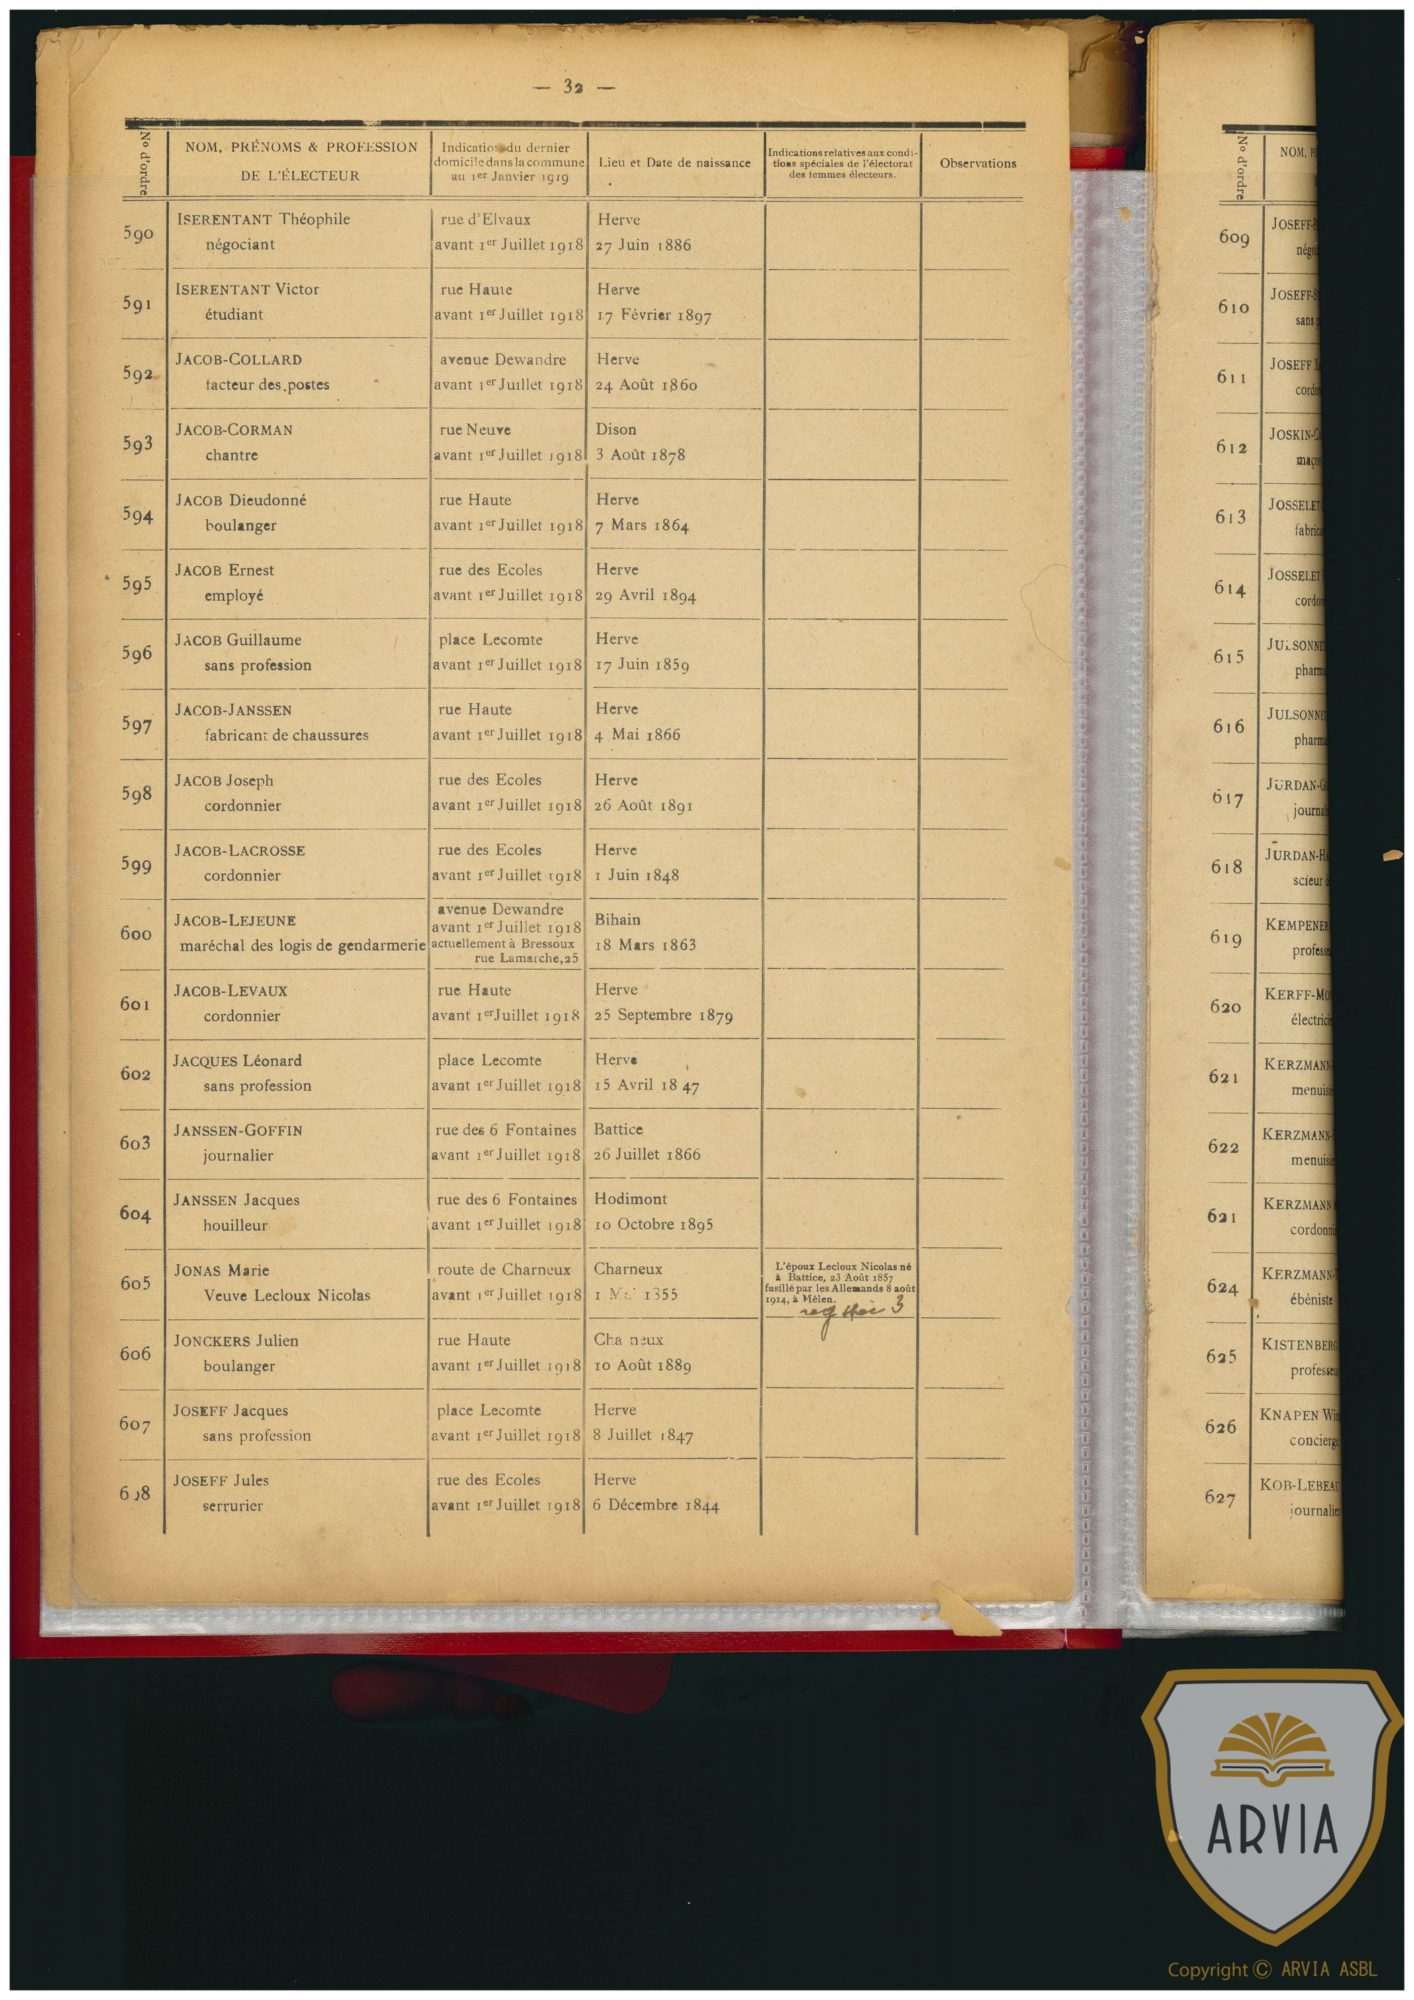 — 32 —
No d'ordre
NOM, PRÉNOMS & PROFESSION
DE L'ÉLECTEUR
Indication du dernier
domicile dans la commune
au 1er Janvier 1919
Lieu et Date de naissance
Indications relatives aux condi-
tions spéciales de l'électorat
des femmes électeurs.
Observations
590 ISERENTANT Théophile rue d'Elvaux Herve
négociant avant 1er Juillet 1918 27 Juin 1886
591 ISERENTANT Victor rue Haute Herve
étudiant avant 1er Juillet 1918 17 Février 1897
592 JACOB-COLLARD avenue Dewandre Herve
facteur des postes avant 1er Juillet 1918 24 Août 1860
593 JACOB-CORMAN rue Neuve Dison
chantre avant 1er Juillet 1918 3 Août 1878
594 JACOB Dieudonné rue Haute Herve
boulanger avant 1er Juillet 1918 7 Mars 1864
595 JACOB Ernest rue des Ecoles Herve
employé avant 1er Juillet 1918 29 Avril 1894
596 JACOB Guillaume place Lecomte Herve
sans profession avant 1er Juillet 1918 17 Juin 1859
597 JACOB-JANSSEN rue Haute Herve
fabricant de chaussures avant 1er Juillet 1918 4 Mai 1866
598 JACOB Joseph rue des Ecoles Herve
cordonnier avant 1er Juillet 1918 26 Août 1891
599 JACOB-LACROSSE rue des Ecoles Herve
cordonnier avant 1er Juillet 1918 1 Juin 1848
600 JACOB-LEJEUNE avenue Dewandre Bihain
maréchal des logis de gendarmerie avant 1er Juillet 1918 18 Mars 1863
actuellement à Bressoux
rue Lamarche, 25
601 JACOB-LEVAUX rue Haute Herve
cordonnier avant 1er Juillet 1918 25 Septembre 1879
602 JACQUES Léonard place Lecomte Herve
sans profession avant 1er Juillet 1918 15 Avril 1847
603 JANSSEN-GOFFIN rue des 6 Fontaines Battice
journalier avant 1er Juillet 1918 26 Juillet 1866
604 JANSSEN Jacques rue des 6 Fontaines Hodimont
houilleur avant 1er Juillet 1918 10 Octobre 1895
605 JONAS Marie route de Charneux Charneux
Veuve Lecloux Nicolas avant 1er Juillet 1918 1 1855
L'époux Lecloux Nicolas né
à Battice, 23 Août 1857
fusillé par les Allemands 8 août
1914, à Mélen.
3
606 JONCKERS Julien rue Haute Cha neux
boulanger avant 1er Juillet 1918 10 Août 1889
607 JOSEFF Jacques place Lecomte Herve
sans profession avant 1er Juillet 1918 8 Juillet 1847
608 JOSEFF Jules rue des Ecoles Herve
serrurier avant 1er Juillet 1918 6 Décembre 1844
No d'ordre
NOM,
609 JOSEFF-
négo
610 JOSEFF-
sans
611 JOSEFF
cordon
612 JOSKIN-
maço
613 JOSSELET
fabric
614 JOSSELET
cordon
615 JULSONNE
pharm
616 JULSONNE
pharm
617 JURDAN-G
journa
618 JURDAN-H
scieur
619 KEMPENER
profess
620 KERFF-MO
électrici
621 KERZMANN
menuis
622 KERZMANN-
menuis
621 KERZMANN
cordonn
624 KERZMANN-
ébéniste
625 KISTENBERG
professeu
626 KNAPEN Wi
concierge
627 KOB-LEBEAU
journalie
ARVIA
Copyright © ARVIA ASBL